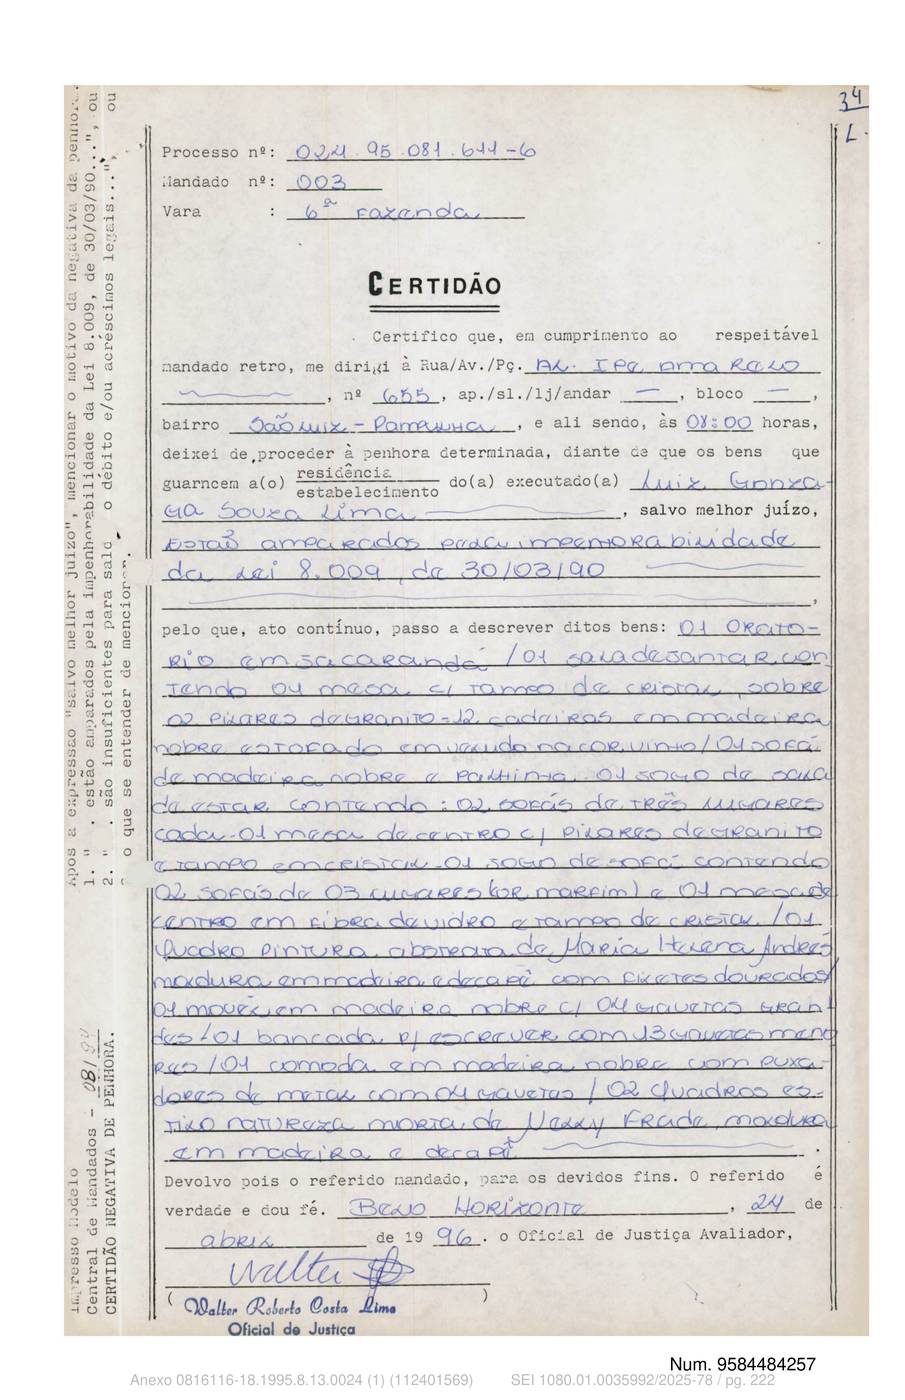 34
L.
Processo nº: 024.95.081.611-6
Mandado nº: 003
Vara : 6ª Fazenda
CERTIDÃO
Certifico que, em cumprimento ao respeitável
mandado retro, me dirigi à Rua/Av./Pç. AL. IPÊ AMARELO
, nº 655, ap./sl./lj/andar —, bloco —,
bairro São Luiz - Pampulha, e ali sendo, às 08:00 horas,
deixei de proceder à penhora determinada, diante de que os bens que
guarncem a(o) residência
estabelecimento do(a) executado(a) Luiz Gonza-
ga Souza Lima, salvo melhor juízo,
estão amparados pela impenhorabilidade
da Lei 8.009, de 30/03/90
,
pelo que, ato contínuo, passo a descrever ditos bens: 01 orató-
rio em jacarandá /01 sala de jantar con
tendo 01 mesa c/ tampo de cristal, sobre
02 pilares de granito - 12 cadeiras em madeira
nobre estofado em veludo na cor vinho / 01 sofá
de madeira nobre e palhinha. 01 jogo de sala
de estar contendo: 02 sofás de três lugares
cada - 01 mesa de centro c/ pilares de granito
e tampo em cristal - 01 jogo de sofá contendo
02 sofás de 03 lugares (cor marfim) e 01 mesa de
centro em fibra de vidro e tampo de cristal /01
Quadro pintura abstrata de Maria Helena Andrés
moldura em madeira e decapê com filetes dourados/
01 móvel em madeira nobre c/ 04 gavetas gran
des /01 bancada p/ escrever com 13 gavetas meno
res /01 comoda em madeira nobre com puxa-
dores de metal com 04 gavetas / 02 Quadros es-
tilo natureza morta, de Nelly Frade, moldura
em madeira e decapê.
Devolvo pois o referido mandado, para os devidos fins. O referido é
verdade e dou fé. Belo Horizonte, 24 de
abril de 1996. o Oficial de Justiça Avaliador,
( )
Walter Roberto Costa Lima
Oficial de Justiça
Após a expressão "salvo melhor juízo", mencionar o motivo da negativa da penhora..
1. " . estão amparados pela impenhorabilidade da Lei 8.009, de 30/03/90...", ou
2. " . são insuficientes para saldar o débito e/ou acréscimos legais...", ou
o que se entender de mencionar.
Impresso Modelo
Central de Mandados - 08/94
CERTIDÃO NEGATIVA DE PENHORA.
Num. 9584484257
Anexo 0816116-18.1995.8.13.0024 (1) (112401569) SEI 1080.01.0035992/2025-78 / pg. 222